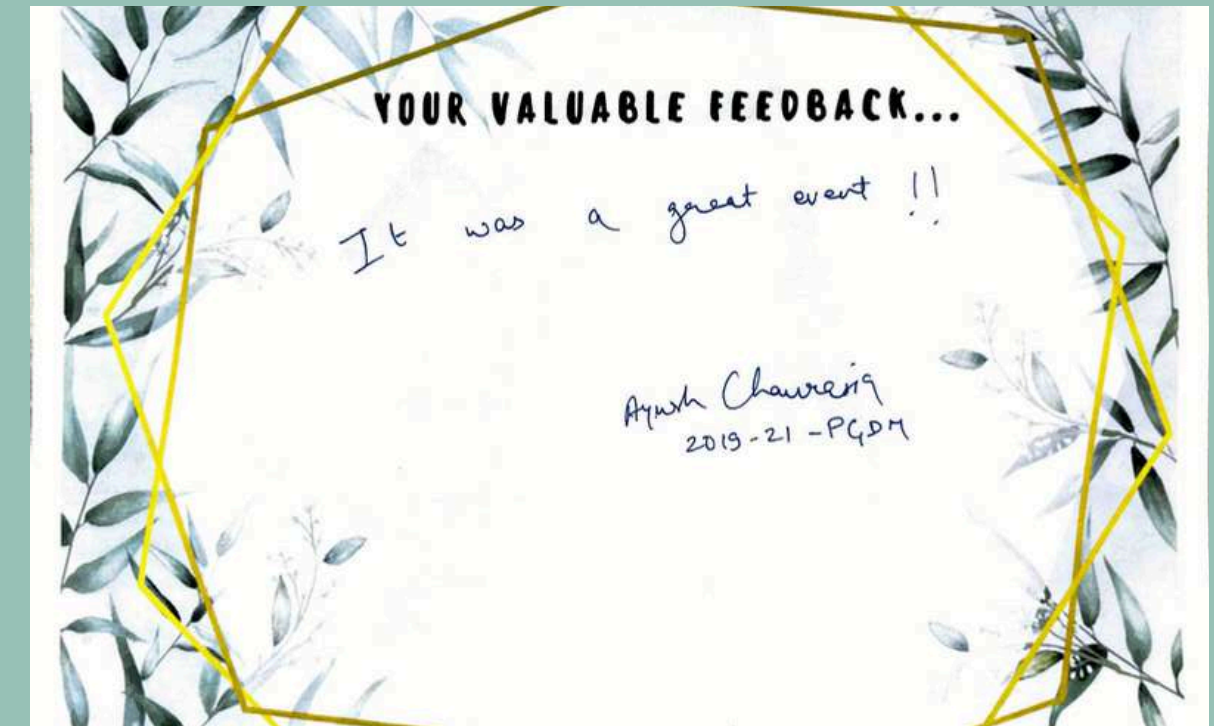 YOUR VALUABLE FEEDBACK...
It was a great event !!
Ayush Chaurasia
2019-21-PGDM